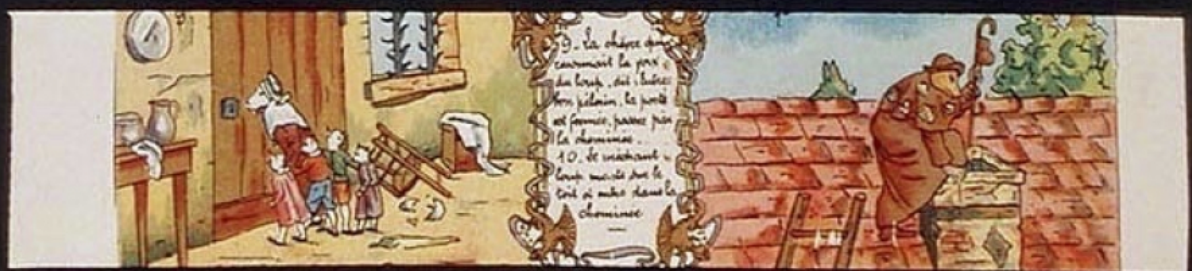 9. La chèvre qui
reconnait la voix
du loup, dit : 
bon pèlerin, la porte
est fermée, passez par
la cheminée.
10. Le méchant
loup monte sur le
toit et entre dans la
cheminée